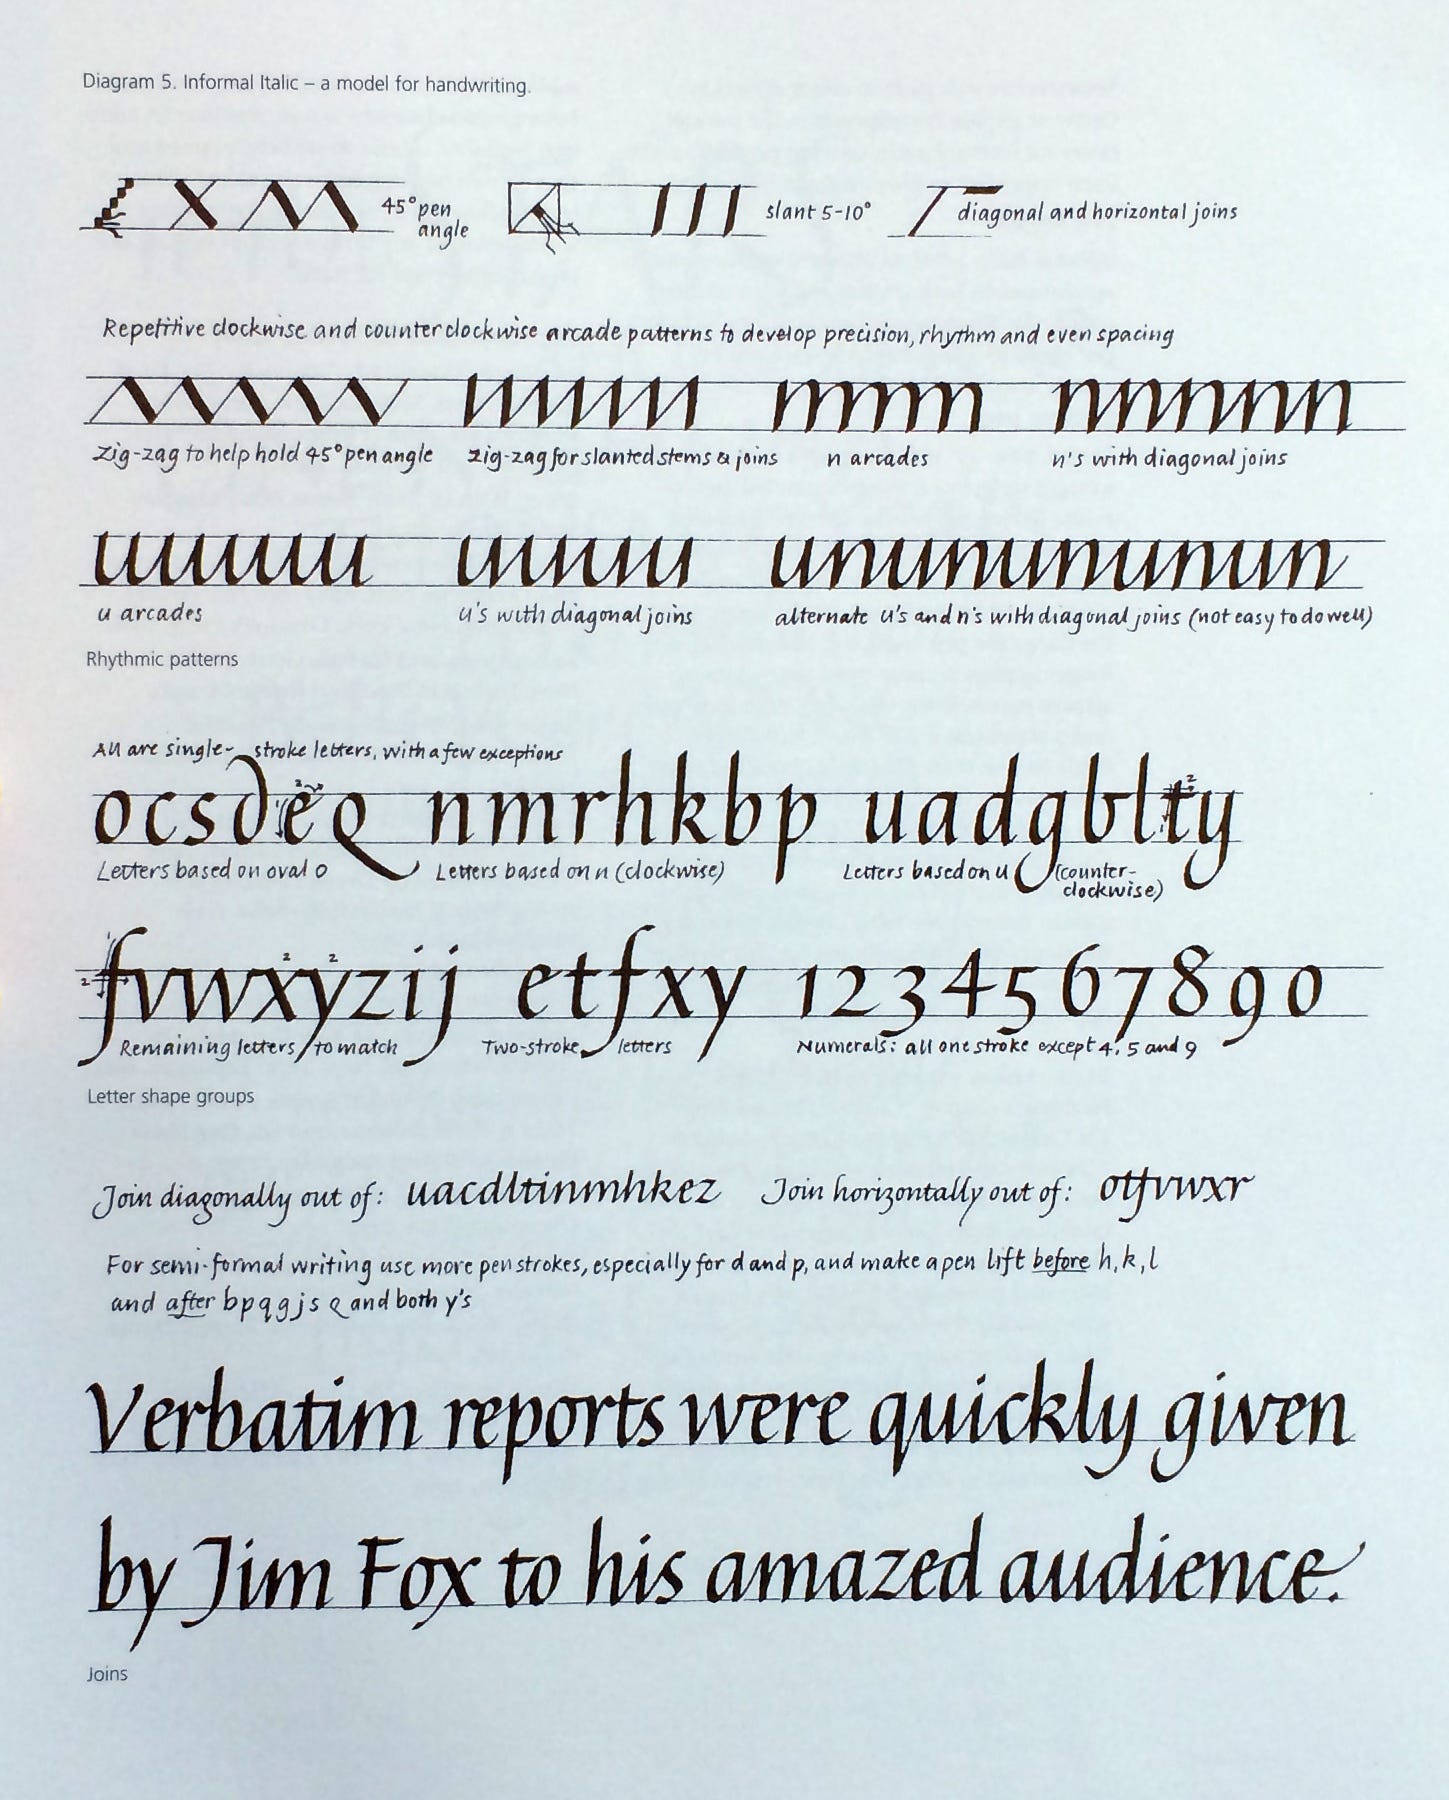 Diagram 5. Informal Italic – a model for handwriting.
45° pen angle
slant 5-10°
diagonal and horizontal joins
Repetitive clockwise and counter clockwise arcade patterns to develop precision, rhythm and even spacing
zig-zag to help hold 45° pen angle
zig-zag for slanted stems & joins
n arcades
n's with diagonal joins
u arcades
u's with diagonal joins
unununununun
alternate u's and n's with diagonal joins (not easy to do well)
Rhythmic patterns
All are single-stroke letters, with a few exceptions
ocsdeq nmrhkbp uadgbltty
Letters based on oval o
Letters based on n (clockwise)
Letters based on u (counter-clockwise)
fvwxyzij etfxy 1234567890
Remaining letters to match
Two-stroke letters
Numerals: all one stroke except 4, 5 and 9
Letter shape groups
Join diagonally out of: uacdltinmhkez Join horizontally out of: otfvwxr
For semi-formal writing use more pen strokes, especially for d and p, and make a pen lift before h, k, l
and after b p q g j s Q and both y's
Verbatim reports were quickly given
by Jim Fox to his amazed audience.
Joins